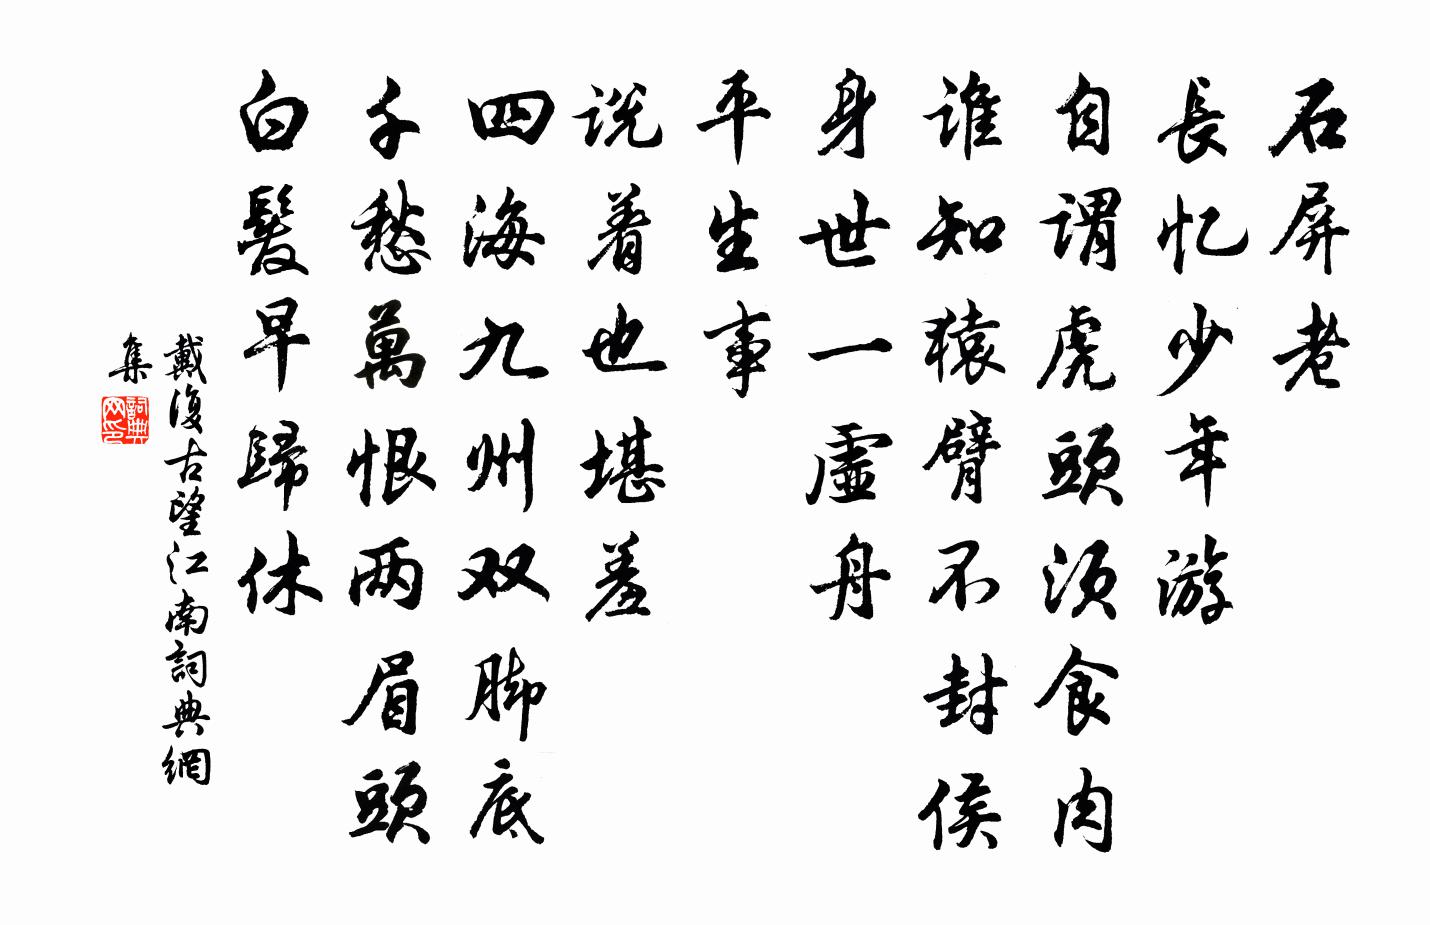 石屏老
長忆少年游
自谓虎頭须食肉
谁知猿臂不封侯
身世一虚舟
平生事
说着也堪羞
四海九州双脚底
千愁萬恨两眉頭
白髮早歸休
戴復古望江南詞典網
集
詞典
网印